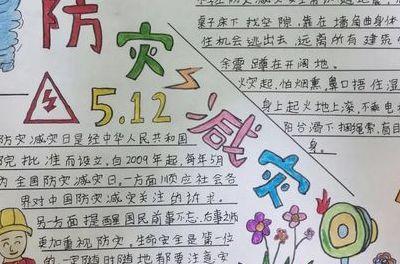 防灾
5.12
减灾
桌子床下找空隙,靠在墙角曲身体
住机会逃出去,远离所有建筑
余震蹲在开阔地。
火灾起,怕烟熏,鼻口捂住湿
身上起火地上滚,不乘电
阳台滑下捆绳索,盲目
身。
防灾减灾日是经中华人民共和国
院批准而设立,自2009年起,每年5月
为全国防灾减灾日。一方面顺应社会各
界对中国防灾减灾关注的诉求。
另一方面提醒国民前事不忘、后事之师
更加重视防灾,生命安全是第一位
的一定随时随地都要注意安